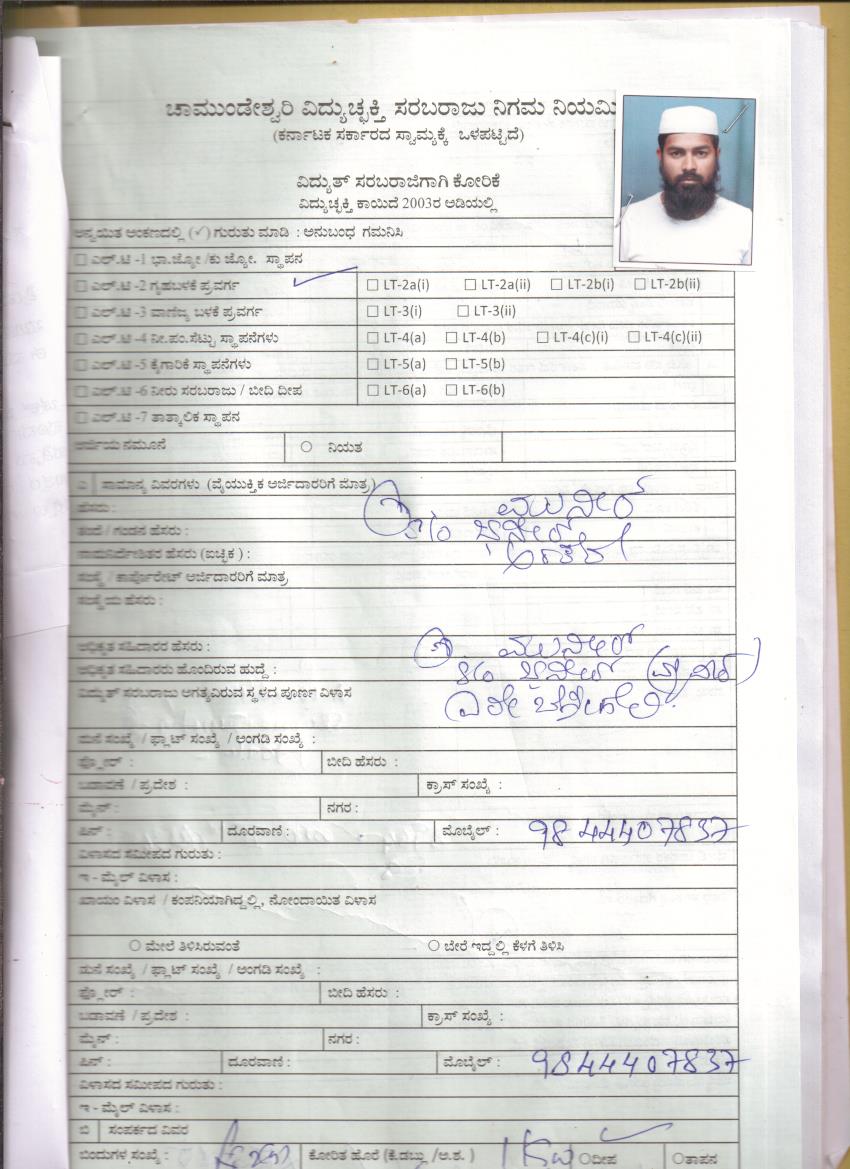 ಚಾಮುಂಡೇಶ್ವರಿ ವಿದ್ಯುಚ್ಛಕ್ತಿ ಸರಬರಾಜು ನಿಗಮ ನಿಯಮಿ
(ಕರ್ನಾಟಕ ಸರ್ಕಾರದ ಸ್ವಾಮ್ಯಕ್ಕೆ ಒಳಪಟ್ಟಿದೆ)
ವಿದ್ಯುತ್ ಸರಬರಾಜಿಗಾಗಿ ಕೋರಿಕೆ
ವಿದ್ಯುಚ್ಛಕ್ತಿ ಕಾಯಿದೆ 2003ರ ಅಡಿಯಲ್ಲಿ
ಅನ್ವಯಿತ ಅಂಕಣದಲ್ಲಿ (✓) ಗುರುತು ಮಾಡಿ : ಅನುಬಂಧ ಗಮನಿಸಿ
☐ ಎಲ್.ಟಿ -1 ಭಾ.ಜ್ಯೋ /ಕು ಜ್ಯೋ. ಸ್ಥಾಪನ
☐ ಎಲ್.ಟಿ -2 ಗೃಹಬಳಕೆ ಪ್ರವರ್ಗ ☐ LT-2a(i) ☐ LT-2a(ii) ☐ LT-2b(i) ☐ LT-2b(ii)
☐ ಎಲ್.ಟಿ -3 ವಾಣಿಜ್ಯ ಬಳಕೆ ಪ್ರವರ್ಗ ☐ LT-3(i) ☐ LT-3(ii)
☐ ಎಲ್.ಟಿ -4 ನೀ.ಪಂ.ಸೆಟ್ಟು ಸ್ಥಾಪನೆಗಳು ☐ LT-4(a) ☐ LT-4(b) ☐ LT-4(c)(i) ☐ LT-4(c)(ii)
☐ ಎಲ್.ಟಿ -5 ಕೈಗಾರಿಕೆ ಸ್ಥಾಪನೆಗಳು ☐ LT-5(a) ☐ LT-5(b)
☐ ಎಲ್.ಟಿ -6 ನೀರು ಸರಬರಾಜು / ಬೀದಿ ದೀಪ ☐ LT-6(a) ☐ LT-6(b)
☐ ಎಲ್.ಟಿ -7 ತಾತ್ಕಾಲಿಕ ಸ್ಥಾಪನ
ಅರ್ಜಿಯ ನಮೂನೆ ○ ನಿಯತ
ಎ ಸಾಮಾನ್ಯ ವಿವರಗಳು (ವೈಯುಕ್ತಿಕ ಅರ್ಜಿದಾರರಿಗೆ ಮಾತ್ರ)
ಹೆಸರು : ಮುನೀರ್
ತಂದೆ / ಗಂಡನ ಹೆಸರು : S/o
ನಾಮನಿರ್ದೇಶಿತರ ಹೆಸರು (ಐಚ್ಛಿಕ) :
ಸಂಸ್ಥೆ / ಕಾರ್ಪೊರೇಟ್ ಅರ್ಜಿದಾರರಿಗೆ ಮಾತ್ರ
ಸಂಸ್ಥೆಯ ಹೆಸರು :
ಅಧಿಕೃತ ಸಹಿದಾರರ ಹೆಸರು : ಮುನೀರ್
ಅಧಿಕೃತ ಸಹಿದಾರರು ಹೊಂದಿರುವ ಹುದ್ದೆ : S/o
ವಿದ್ಯುತ್ ಸರಬರಾಜು ಅಗತ್ಯವಿರುವ ಸ್ಥಳದ ಪೂರ್ಣ ವಿಳಾಸ
ಮನೆ ಸಂಖ್ಯೆ / ಫ್ಲಾಟ್ ಸಂಖ್ಯೆ / ಅಂಗಡಿ ಸಂಖ್ಯೆ :
ಫ್ಲೋರ್ : ಬೀದಿ ಹೆಸರು :
ಬಡಾವಣೆ / ಪ್ರದೇಶ : ಕ್ರಾಸ್ ಸಂಖ್ಯೆ :
ಮೈನ್ : ನಗರ :
ಪಿನ್ : ದೂರವಾಣಿ : ಮೊಬೈಲ್ : 9844407837
ವಿಳಾಸದ ಸಮೀಪದ ಗುರುತು :
ಇ - ಮೈಲ್ ವಿಳಾಸ :
ಖಾಯಂ ವಿಳಾಸ / ಕಂಪನಿಯಾಗಿದ್ದಲ್ಲಿ, ನೋಂದಾಯಿತ ವಿಳಾಸ
○ ಮೇಲೆ ತಿಳಿಸಿರುವಂತೆ ○ ಬೇರೆ ಇದ್ದಲ್ಲಿ ಕೆಳಗೆ ತಿಳಿಸಿ
ಮನೆ ಸಂಖ್ಯೆ / ಫ್ಲಾಟ್ ಸಂಖ್ಯೆ / ಅಂಗಡಿ ಸಂಖ್ಯೆ :
ಫ್ಲೋರ್ : ಬೀದಿ ಹೆಸರು :
ಬಡಾವಣೆ / ಪ್ರದೇಶ : ಕ್ರಾಸ್ ಸಂಖ್ಯೆ :
ಮೈನ್ : ನಗರ :
ಪಿನ್ : ದೂರವಾಣಿ : ಮೊಬೈಲ್ : 9844407837
ವಿಳಾಸದ ಸಮೀಪದ ಗುರುತು :
ಇ - ಮೈಲ್ ವಿಳಾಸ :
ಬಿ ಸಂಪರ್ಕದ ವಿವರ
ಬಿಂದುಗಳ ಸಂಖ್ಯೆ : ಕೋರಿತ ಹೊರೆ (ಕೆ.ಡಬ್ಲು /ಅ.ಶ. ) 1 KW ○ದೀಪ ○ತಾಪನ